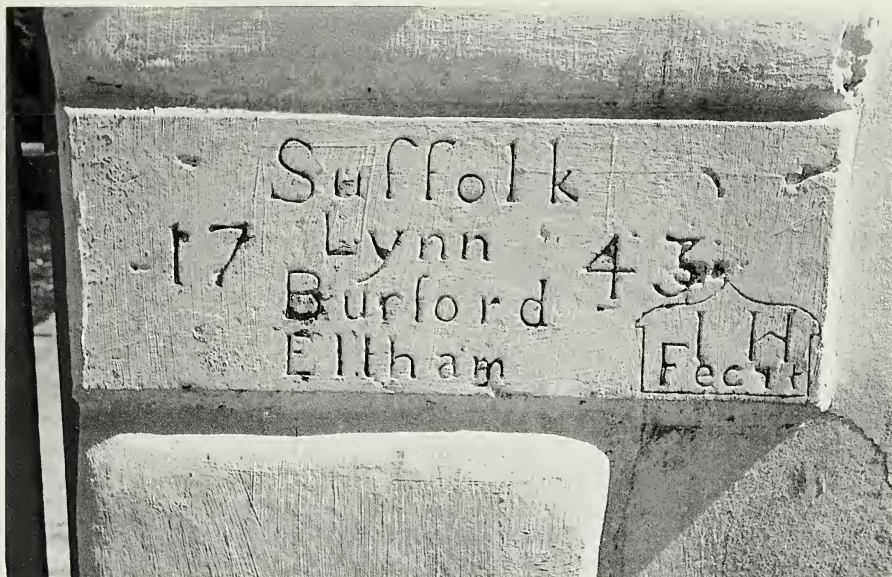 Suffolk
Lynn
17 43
Burford
Eltham
I H
Fecit